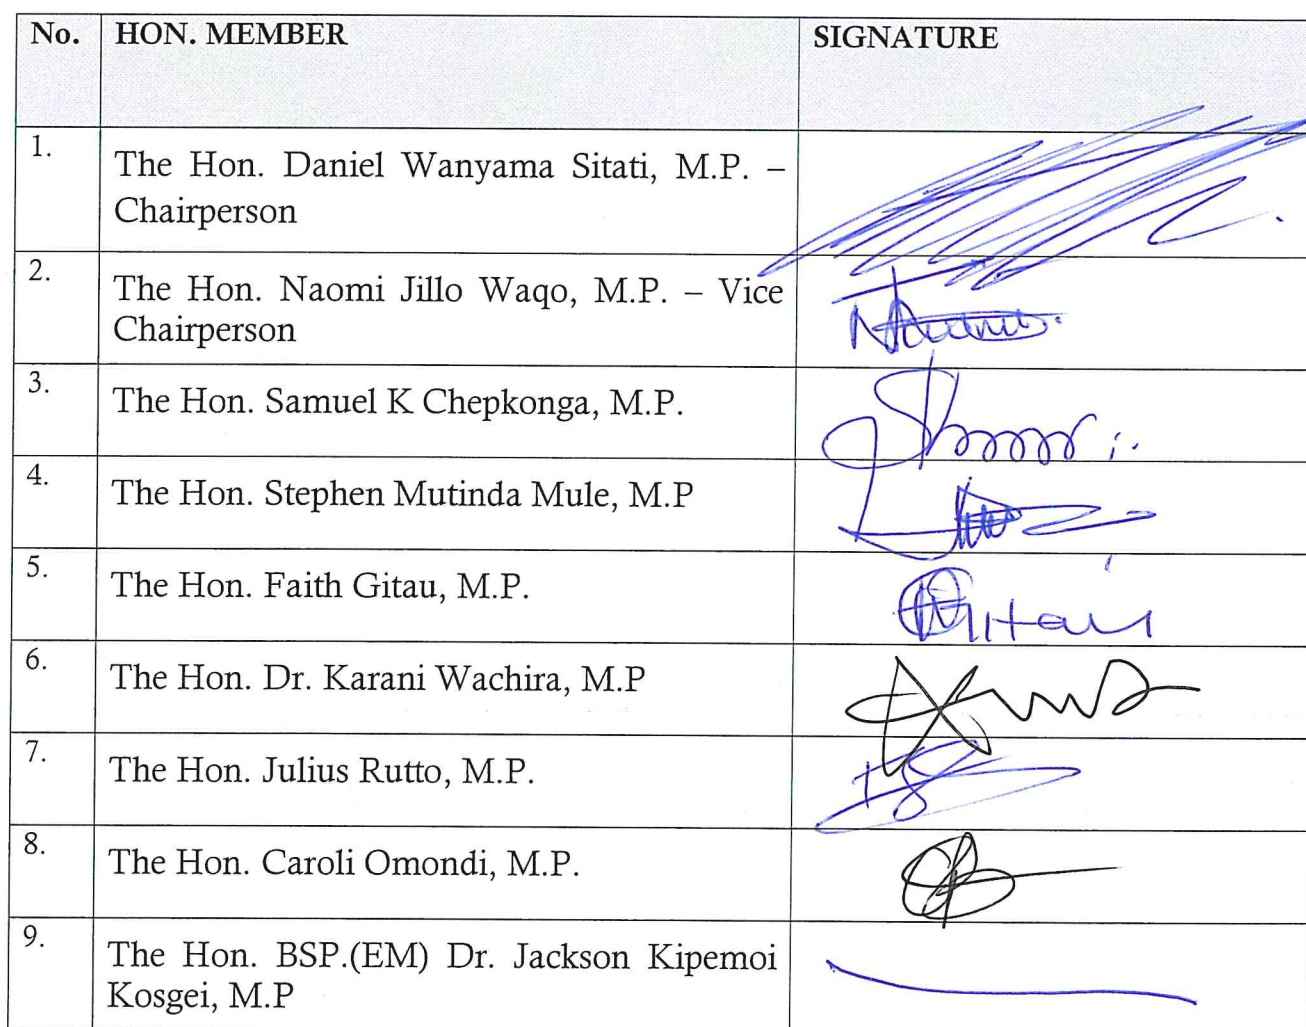 No. HON. MEMBER SIGNATURE
1. The Hon. Daniel Wanyama Sitati, M.P. –
Chairperson
2. The Hon. Naomi Jillo Waqo, M.P. – Vice
Chairperson
3. The Hon. Samuel K Chepkonga, M.P.
4. The Hon. Stephen Mutinda Mule, M.P
5. The Hon. Faith Gitau, M.P.
6. The Hon. Dr. Karani Wachira, M.P
7. The Hon. Julius Rutto, M.P.
8. The Hon. Caroli Omondi, M.P.
9. The Hon. BSP.(EM) Dr. Jackson Kipemoi
Kosgei, M.P